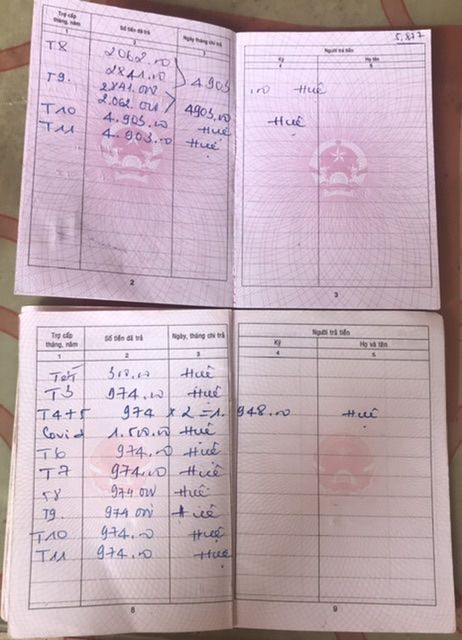 5,877
Trợ cấp tháng, năm Số tiền đã trả Ngày tháng chi trả Người trả tiền
Ký Họ tên
1 2 3 4 5
T8 2062.000
2841.000 4.903
T9. 2.841.000 Huê
2.062.000 4903.000
T10 4.903.000 Huệ Huê
T11 4.903.000 Huệ
2 3
Trợ cấp tháng, năm Số tiền đã trả Ngày, tháng chi trả Người trả tiền
Ký Họ và tên
1 2 3 4 5
Tết Huê
T3 974.000 Huệ
T4+5 974 × 2 = 1.948.000 Huệ
Covid 1.500.000 Huệ
T6 974.000 Huệ
T7 974.000 Huệ
974.000 Huê
T9. 974.000 Huê
T10 974.000 Huê
T11 974.000 Huệ
8 9